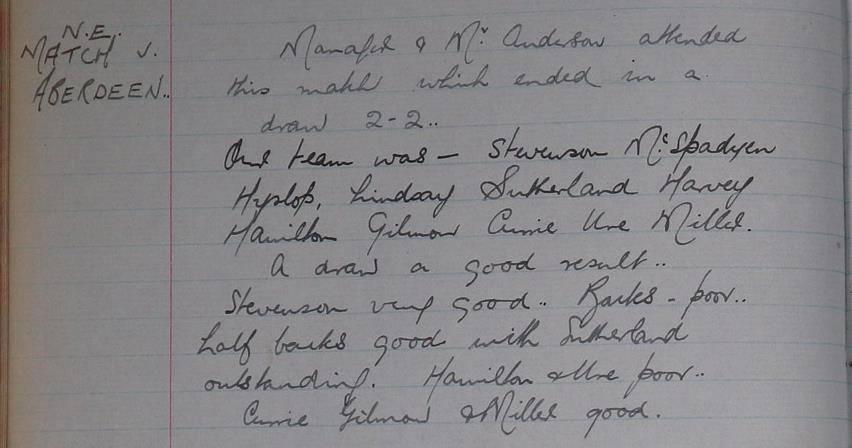 N.E.
MATCH v.
ABERDEEN..
Manager & Mr. Anderson attended
this match which ended in a
draw 2-2..
Our team was – Stevenson McSpadyen
Hyslop, Lindsay Sutherland Harvey
Hamilton Gilmour Currie Ure Miller.
A draw a good result..
Stevenson very good.. Backs – poor..
half backs good with Sutherland
outstanding. Hamilton & Ure poor..
Currie Gilmour & Miller good.